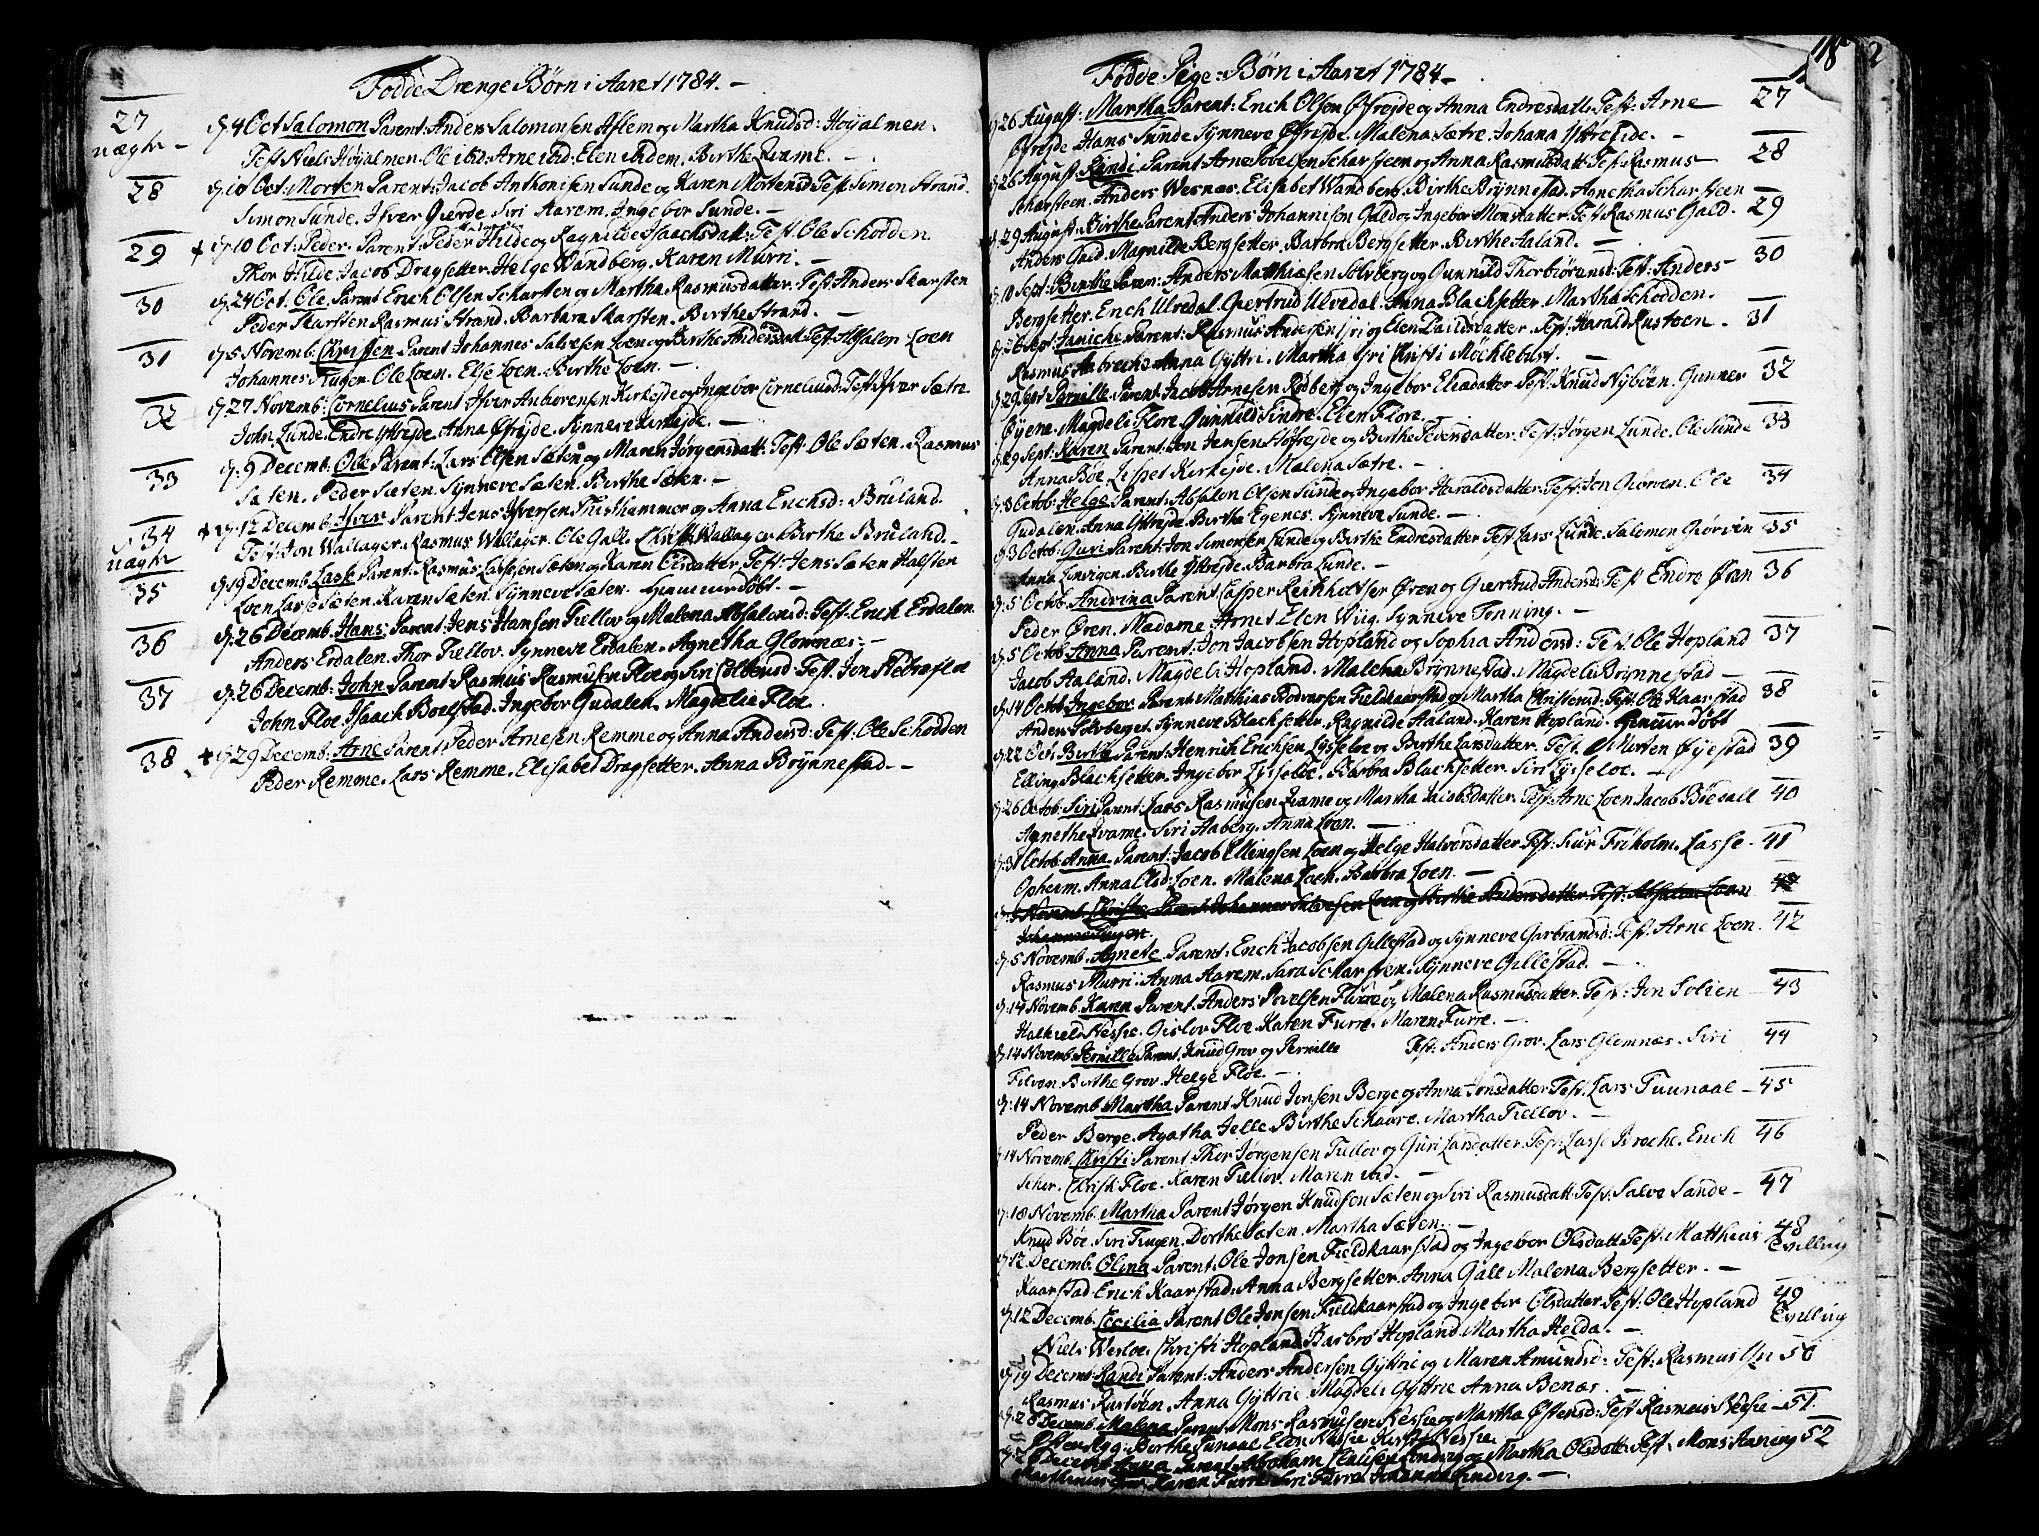 Fødde Drenge Børn i Aaret 1784. -
27 uægte - d. 4 Oct Salomon Parent: Anders Salomonsen Aslem og Martha Knudsd: Høyalmen.
Test Niels Høyalmen. Ole ibid: Arne ibid: Elen ibidem. Birthe Remme. -
28 d. 10 Oct: Morten Parent: Jacob Anthonisen Sunde og Karen Mortensd: Test: Simon Strand.
Simon Sunde. Ifver Gierde. Siri Aarem. Ingebor Sunde. -
29 d. 10 Oct: Peder. Parent: Peder Hilde og Ragnilde Isaachsdatt: Test: Ole Schodden
Thor Hilde Jacob Dragsetter. Helge Wandberg. Karen Murri. -
30 d. 24 Oct. Ole. Parent Erich Olsen Scharsten og Martha Rasmusdatter. Test: Anders Skarsten
Peder Skarsten Rasmus Strand. Barbara Skarsten. Birthe Strand. -
31 d. 5 Novemb: Christen Parent Johannes Salvesen Loen og Birthe Andersdatt Test: Absalon Loen
Johannes Tugen. Ole Loen. Else Loen. Birthe Loen. -
32 d. 27 Novemb: Cornelius Parent Ifver Anhorensen Kirkejde og Ingebor Corneliusd: Test: Ifver Sætre
John Lunde. Endre Yttrejde. Anna Øfrejde. Synneve Kirkejde. -
33 d. 9 Decemb: Ole Parent: Lars Olsen Sæten og Maren Jørgensdatt: Test: Ole Sæten. Rasmus
Sæten. Peder Sæten. Synneve Sæten. Birthe Sæten. -
34 uægte d. 12 Decemb. Ifver Parent Jens Ifversen Thishammer og Anna Erichsd: Bruland.
Test: Jon Wallager. Rasmus Wallager. Ole Galle. Christi Wallager. Birthe Bruland. -
35 d. 19 Decemb. Lasse Parent: Rasmus Lassesen Sæten og Karen Olsdatter Test: Jens Sæten Halsten
Loen Lasse Sæten. Karen Sæten. Synneve Sæten. Hiemmedøbt. -
36 d. 26 Decemb. Hans: Parent: Jens Hansen Tiellov og Malena Absalonsd: Test: Erich Erdalen
Anders Erdalen. Thor Tiellov. Synneve Erdalen. Agnetha Glomnæs. -
37 d. 26 Decemb: John Parent: Rasmus Rasmusen Floe og Siri Colbensd: Test: Jon Floe
John Floe Isaach Boelstad. Ingebor Gudalen. Magdelia Floe.
38 d. 29 Decemb: Arne Parent Peder Arnesen Remme og Anna Andersd: Test: Ole Schodden
Peder Remme. Lars Remme. Elisabed Dragsetter. Anna Brynnestad. -
Fødde Pige-Børn i Aaret 1784 -
d. 26 August: Martha Parent: Erich Olsen Øfrejde og Anna Endresdatt: Test: Arne 27
Øfrejde Hans Sunde. Synneve Øfrejde. Malena Sætre. Johana Yttrejde. -
d. 26 August. Randi Parent Arne Povelsen Scharsteen og Anna Rasmusdatt: Test Rasmus 28
Scharsteen. Anders Wesnæs. Elisabet Wandberg. Birthe Brynnestad. Agnetha Scharsteen
d. 29 August: Birthe Parent Anders Johannisen Gald og Ingebor Monsdatter. Test Rasmus Gald. 29
Anders Gald. Magnilde Bergsetter. Barbra Bergsetter. Birthe Aaland. -
d. 10 Sept: Birthe Paren: Anders Matthiæsen Solvberg og Gunnild Thorbiørnsd: Test: Anders 30
Bergsetter. Erich Ulvedal. Giertrud Ulvedal. Anna Blachsetter. Martha Schodden.
d. 26 Sept: Janiche Parent: Rasmus Andersen Gri og Elen Davidsdatter. Test: Harald Rustoen. 31
Rasmus Aabreche Anna Gyttri. Martha Gri Christi Møchlebust. -
d. 29 Sept Pernille Parent Jacob Arnesen Rødbett og Ingebor Elisdatter Test: Knud Nyböen. Gunner 32
Øyene. Magdeli Flore. Gunnild Sindre. Elen Flore.
d. 29 Sept: Karen Parent: Jon Jensen Høfrejde og Birthe Stevensdatter. Test: Jørgen Lunde. Ole Sunde 33
Anna Bøe. Lispet Kirkejde. Malena Sætre. -
d. 3 Octob: Helge Parent: Absalon Olsen Sunde og Ingebor Haraldsdatter. Test: Jon Giørven. Ole 34
Gudalen. Anna Yttrejde. Birthe Egenes. Synneve Sunde. -
d. 3 Octob: Guri Parent: Jon Simonsen Sunde og Birthe Endresdatter Test Lars Lunde. Salomon Giørven 35
Anna Lonvigen. Birthe Yttrejde. Barbra Lunde. -
d. 5 Octob. Andrina Parent Casper Reinhotser Øren og Giertrud Andersd: Test Endre Øren 36
Peder Øren. Madame Arnet. Elen Wiig. Synneve Tenning. -
d. 5 Octob Anna Parent: Jon Jacobsen Hopland og Sophia Andersd: Test. Ole Hopland 37
Jacob Aaland. Magdeli Hopland. Malena Brynnestad. Magdeli Brynnestad -
d. 14 Octob. Ingebor Parent Mathias Bodvarsen Fieldkaarstad og Martha Christensd: Test: Ole Kaarstad 38
Anders Solvberget. Synneve Blachsetter. Ragnilde Aaland. Karen Hopland. Hiemme Døbt
d. 22 Oct. Birthe Parent: Henrich Erichsen Lysseloe og Birthe Larsdatter. Test. Morten Øyestad 39
Elling Blachsetter. Ingebor Lysseloe. Barbra Blachsetter. Siri Lysseloe. -
d. 26 Octob: Siri Parent: Lars Rasmusen Qvame og Martha Jacobsdatter. Test: Arne Loen Jacob Bødall 40
Agnethe Qvame. Siri Aaberg. Anna Loen. -
d. 31 Octob: Anna Parent: Jacob Ellingsen Loen og Helge Halvorsdatter Test: Siur Friholm. Lasse 41
Opheim. Anna Olsd: Loen. Malena Loen. Barbra Loen. -
d. 5 Novemb. Parent Johannes Salvesen Loen og Birthe Andersdatter Test: Absalon Loen 42
Johannes Tugen.
d. 5 Novemb. Agnete Parent: Erich Jacobsen Gillestad og Synneve Garbrandsd: Test: Arne Loen. 42
Rasmus Murri. Anna Aarem. Sara Scharsten. Synneve Gillestad. -
d. 14 Novemb Karen Parent. Anders Povelsen Furre og Malena Rasmusdatter. Test: Jon Solien 43
Halkield Nesse. Gislov Floe. Karen Furre. Maren Furre. -
d. 14 Novemb. Pernille Parent. Knud Grov og Pernille Test: Anders Grov. Lars Glomnæs. Siri 44
Folven. Birthe Grov. Helge Floe. -
d. 14 Novemb. Martha Parent Knud Jonsen Berge og Anna Jonsdatter Test. Lars Tuunaal - 45
Peder Berge. Agatha Jelle. Birthe Schaare. Martha Tiellov. -
d. 14 Novemb. Christi Parent. Thor Jørgensen Tiellov og Guri Larsdatter. Test: Lasse Broche. Erich 46
Scher. Christi Floe. Karen Tiellov. Maren ibid. -
d. 18 Novemb. Martha Parent Jørgen Knudsen Sæten og Siri Rasmusdatt: Test: Salve Sande - 47
Knud Bøe. Siri Tugen. Dorthe Sæten. Martha Sæten. -
d. 12 Decemb. Olina Parent. Ole Jonsen Fieldkaarstad og Ingebor Olsdatt: Test: Matthias 48 Tvilling
Kaarstad. Erich Kaarstad. Anna Bergsetter. Anna Gall Malena Bergsetter. -
d. 12 Decemb. Cecilia Parent Ole Jonsen Fieldkaarstad og Ingebor Olsdatter. Test: Ole Hopland 49 Tvilling
Niels Wesloe. Christi Hopland Barbro Hopland. Martha Helda. -
d. 19 Decemb: Randi Parent: Anders Andersen Gyttrie og Maren Amundsd: Test: Rasmus Gri 50
Rasmus Rustøen. Anna Gyttrie. Magdeli Gyttrie Anna Benæs. -
d. 26 Decemb. Malena Parent. Mons Rasmusen Nesse og Martha Østensd: Test Rasmus Nesse - 51.
Østen Ryg. Birthe Tunaal Elen Nesse Nesse
d. 26 Decemb Anna Parent. Abraham og Martha Olsdatt: Test. Mons 52
Karen Furre. Siri Furre. Johanna -